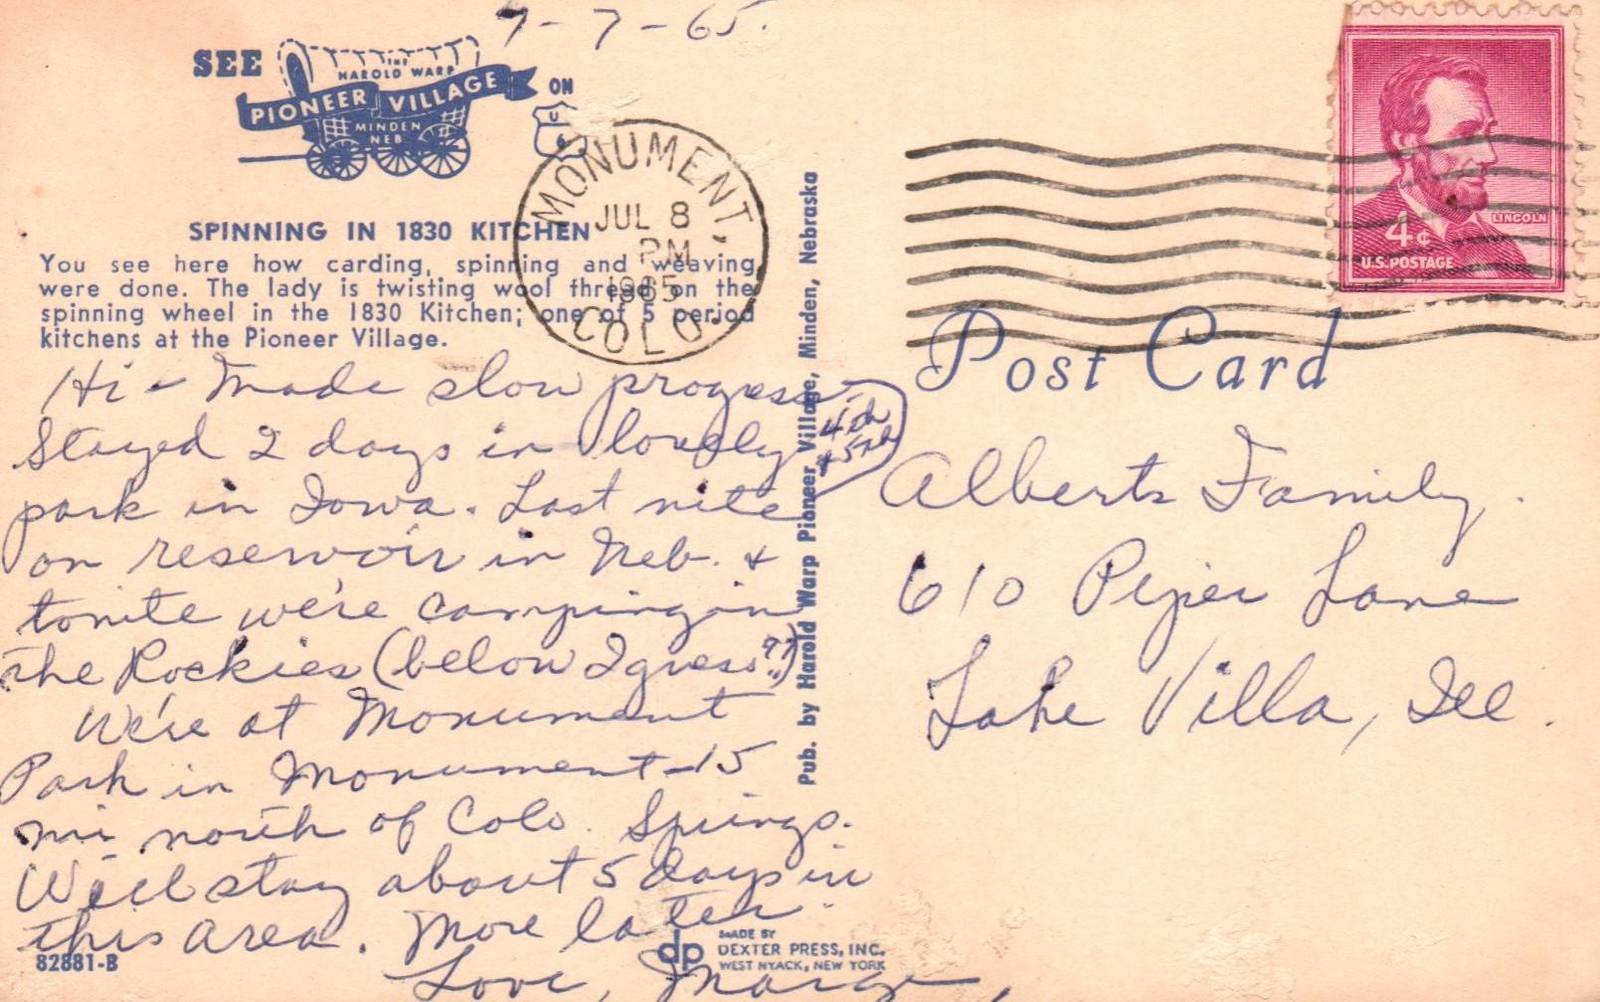 7-7-65.
SEE
THE
HAROLD WARP
PIONEER VILLAGE
MINDEN
NEB.
ON
U S
6
MONUMENT
JUL 8
PM
1965
COLO.
LINCOLN
4¢
U.S. POSTAGE
SPINNING IN 1830 KITCHEN
You see here how carding, spinning and weaving
were done. The lady is twisting wool thread on the
spinning wheel in the 1830 Kitchen; one of 5 period
kitchens at the Pioneer Village.
Post Card
Hi - Made slow progress.
Stayed 2 days in lovely
4th
+ 5th
park in Iowa. Last nite
on reservoir in Neb. +
tonite we're camping in
the Rockies (below Igress??)
We're at Monument
Park in Monument - 15
mi north of Colo. Springs.
We'll stay about 5 days in
this area. More later.
Love, Marge
Alberts Family.
610 Piper Lane
Lake Villa, Ill.
Pub. by Harold Warp Pioneer Village, Minden, Nebraska
82881-B
dp
MADE BY
DEXTER PRESS, INC.
WEST NYACK, NEW YORK